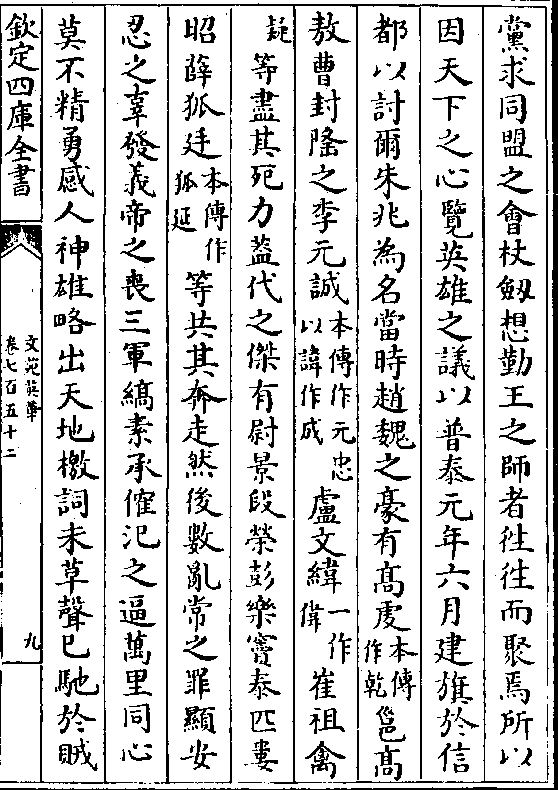 黨求同盟之會杖劔想勤王之師者徃徃而聚焉所以
因天下之心覽英雄之議以普泰元年六月建旗於信
都以討爾朱兆為名當時趙魏之豪有髙䖍本傳作乾邕髙
敖曹封隆之李元誠本傳作元忠以諱作成盧文緯一作偉崔祖禽
疑等盡其死力葢代之傑有尉景段榮彭樂竇泰匹婁
昭薛狐廷本傳作狐延等共其奔走然後數亂常之罪顯安
忍之辜發義帝之喪三軍縞素承傕汜之逼萬里同心
莫不精勇感人神雄略出天地檄詞未草聲已馳於賊
欽定四庫全書
文苑英華
卷七百五十二
九